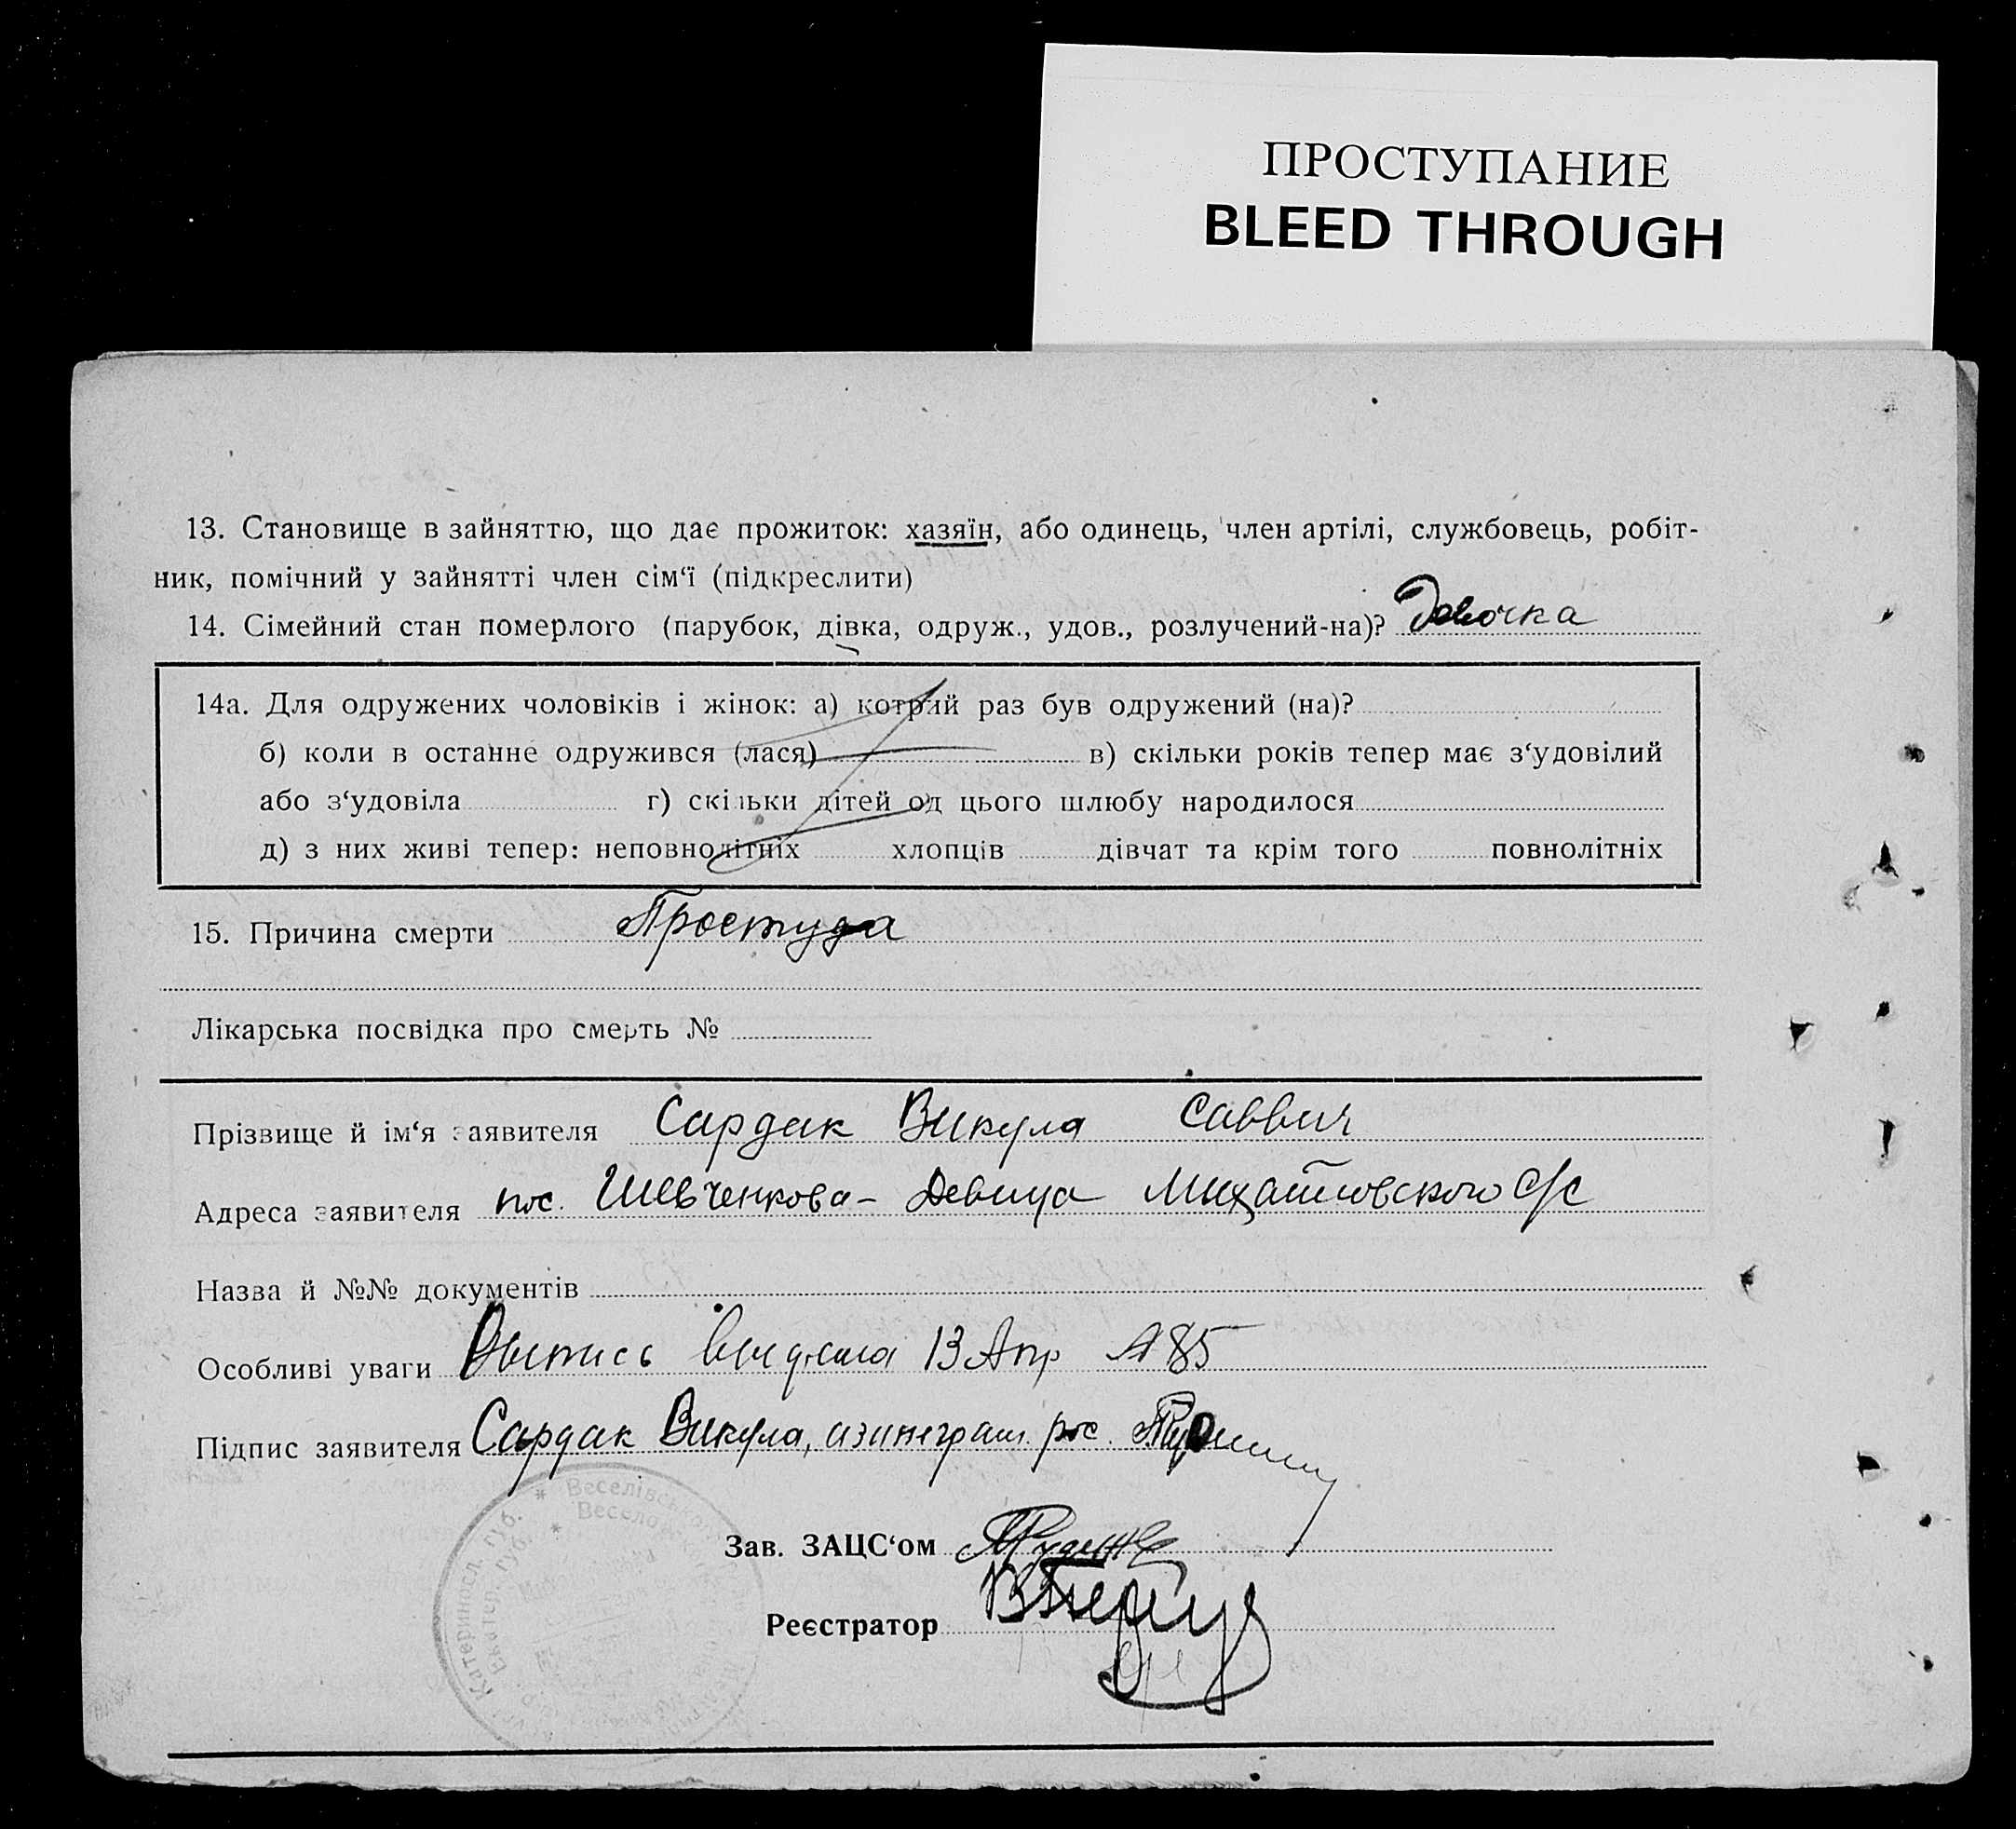 ПРОСТУПАНИЕ
BLEED THROUGH
13. Становище в зайняттю, що дає прожиток: хазяїн, або одинець, член артілі, службовець, робіт-
ник, помічний у зайнятті член сім‘ї (підкреслити)
14. Сімейний стан померлого (парубок, дівка, одруж., удов., розлучений-на)? Девочка
14а. Для одружених чоловіків і жінок: а) котрий раз був одружений (на)?
б) коли в останнє одружився (лася) в) скільки років тепер має з‘удовілий
або з‘удовіла г) скільки дітей од цього шлюбу народилося
д) з них живі тепер: неповнолітніх хлопців дівчат та крім того повнолітніх
15. Причина смерти Простуда
Лікарська посвідка про смерть №
Прізвище й ім‘я заявителя Сардак Викула Саввич
Адреса заявителя пос. Шевченкова- Девица Михайловского с/с
Назва й №№ документів
Особливі уваги Выпись выдана 13 Апр № 85
Підпис заявителя Сардак Викула,
Зав. ЗАЦС‘ом
Реєстратор
Катериносл. губ. * Веселівського
Екатер. губ. *